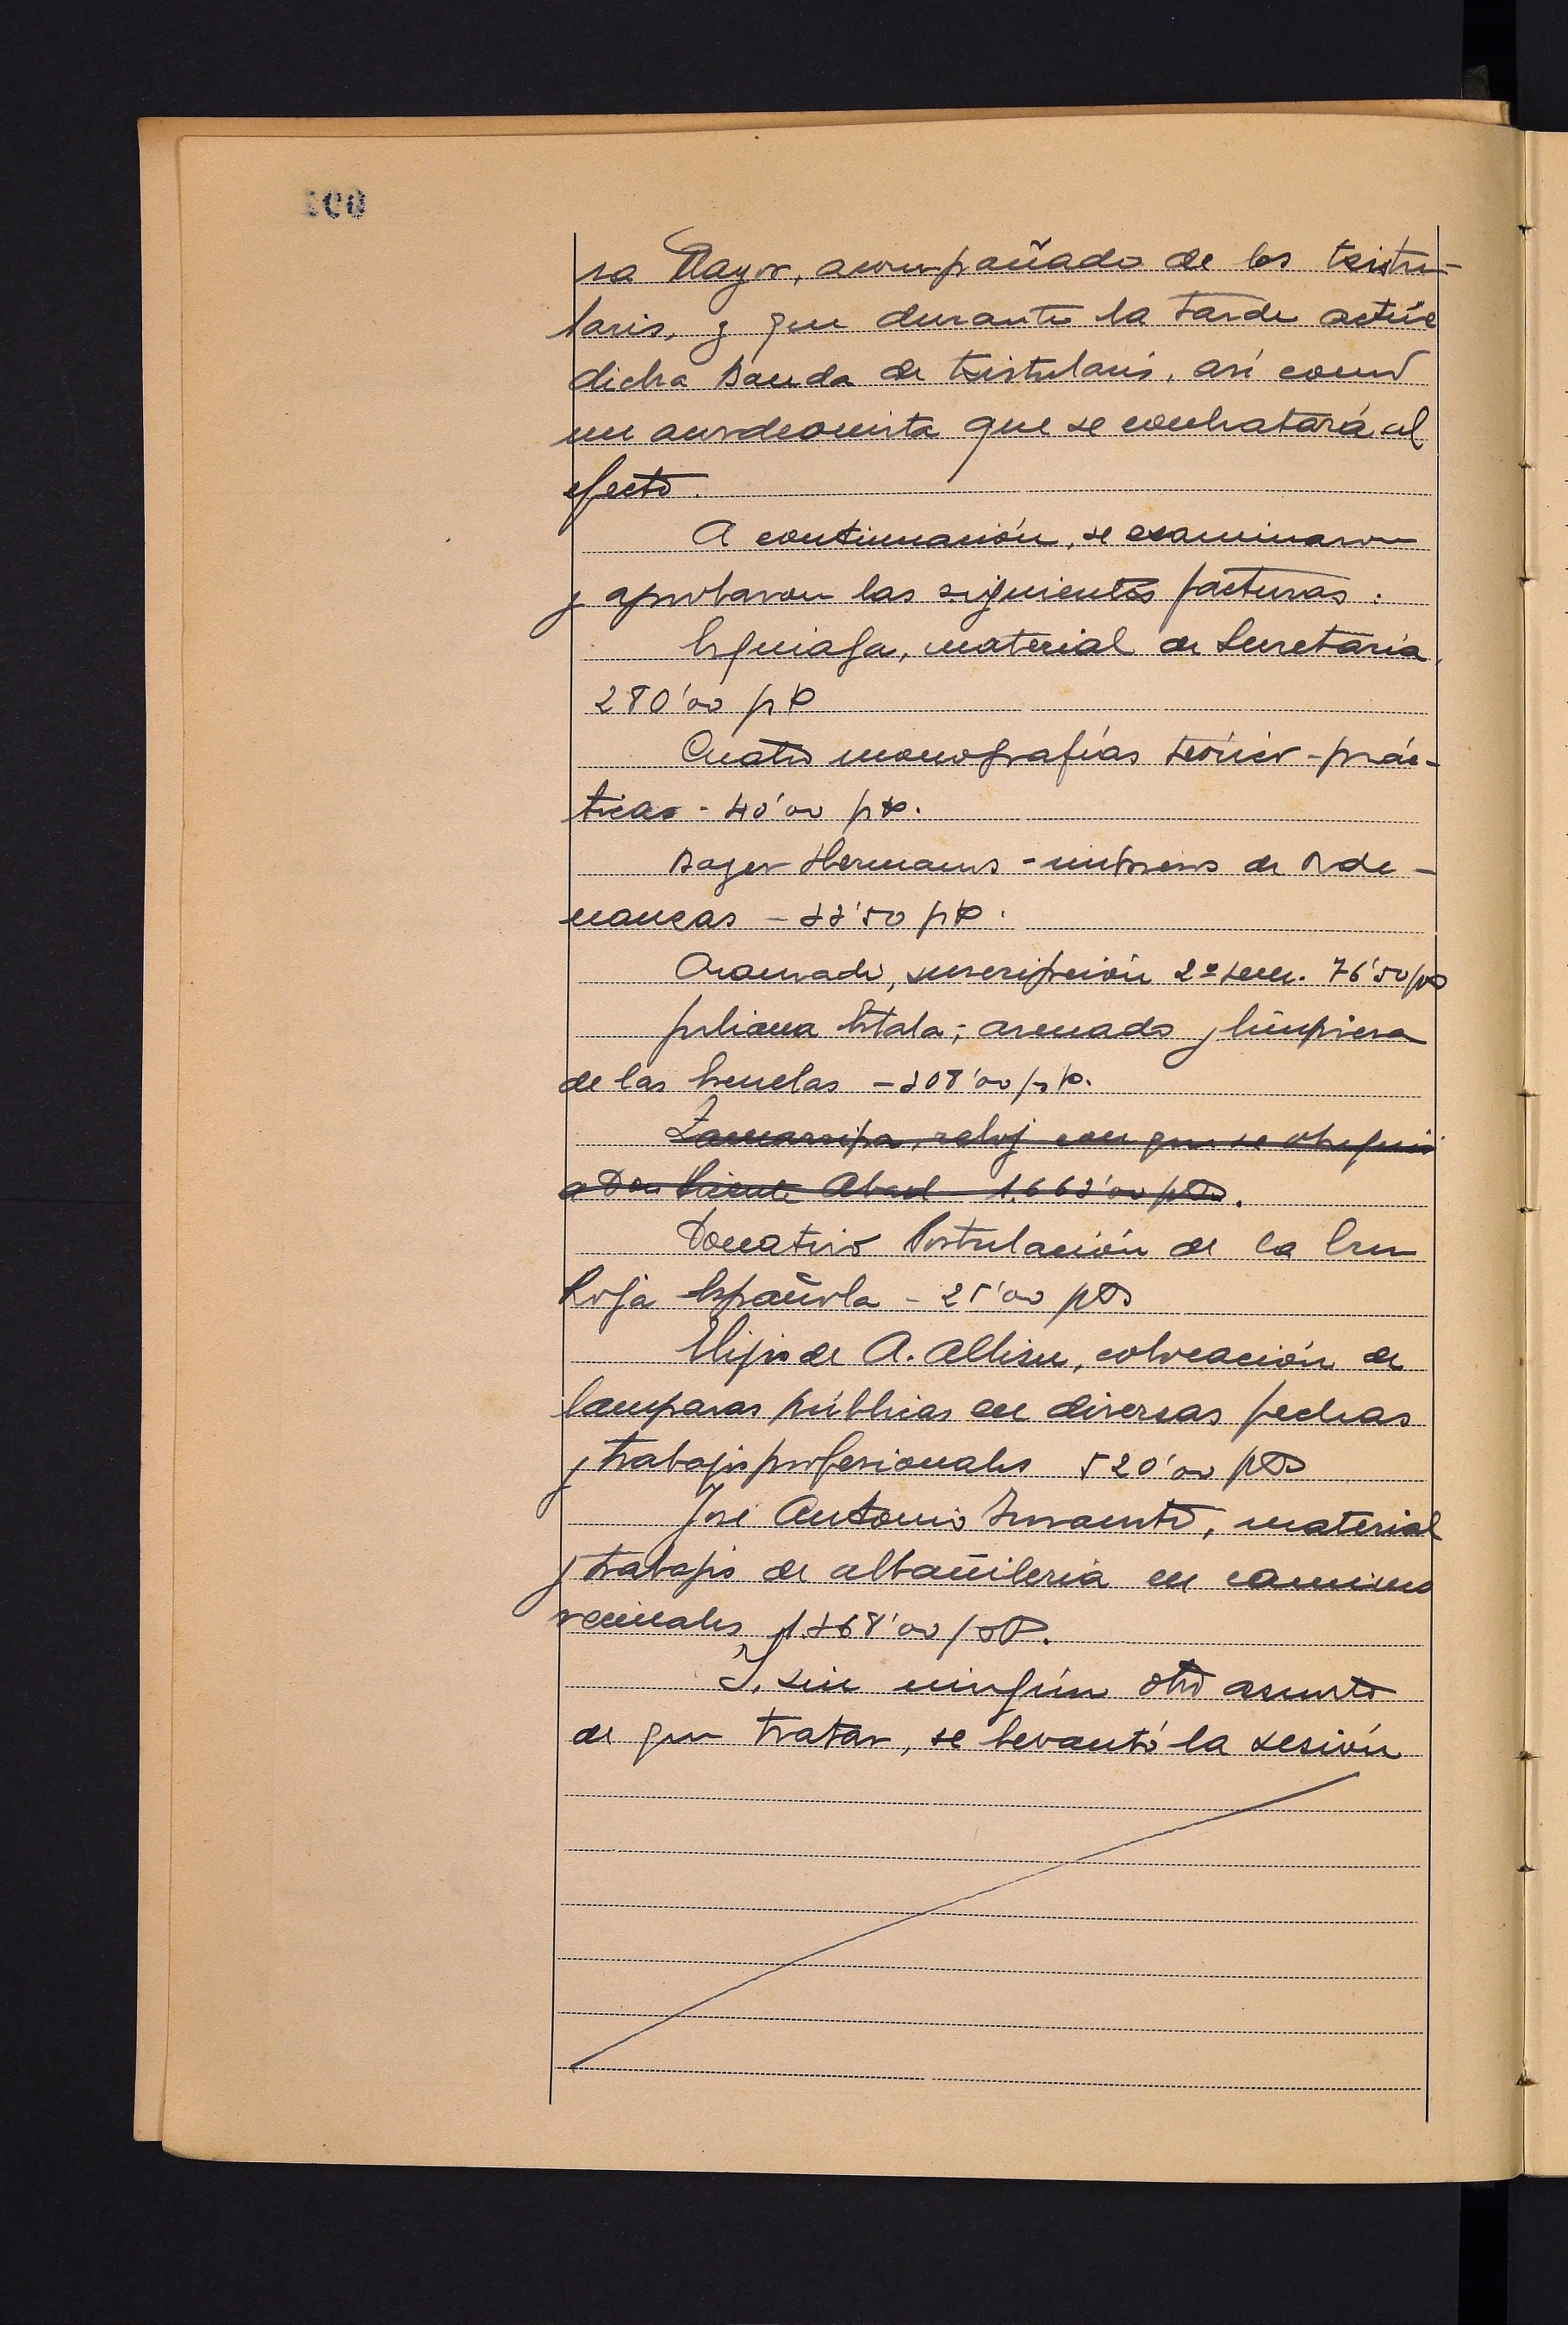 sa Mayor, acompañado de los txistu-
laris, y que durante la tarde actúe
dicha Banda de txistularis, así como
un acordeonista que se contratará al
efecto.
A continuación, se examinaron
y aprobaron las siguientes facturas:
Eguiaga, material de Secretaria,
280'00 pts
Cuatro monografías teórico-prác-
ticas - 40'00 pts.
Hermanos - impresos de Orde-
nanzas - 33'50 pts.
Aranzadi, suscripción 2º sem. 76'50 pts
Juliana ; arenado y limpieza
de las Escuelas - 308'00 pts.
Zamarripa, reloj con que se obsequió
a Don Vicente Abad 1.663'00 pts.
Donativo Postulación de la Cruz
Roja Española - 25'00 pts
Hijos de A. Albizu, colocación de
lamparas públicas en diversas fechas
y trabajos profesionales 520'00 pts
José Antonio , material
y trabajos de albañileria en caminos
vecinales 1.368'00 pts.
Y, sin ningún otro asunto
de que tratar, se levantó la sesión